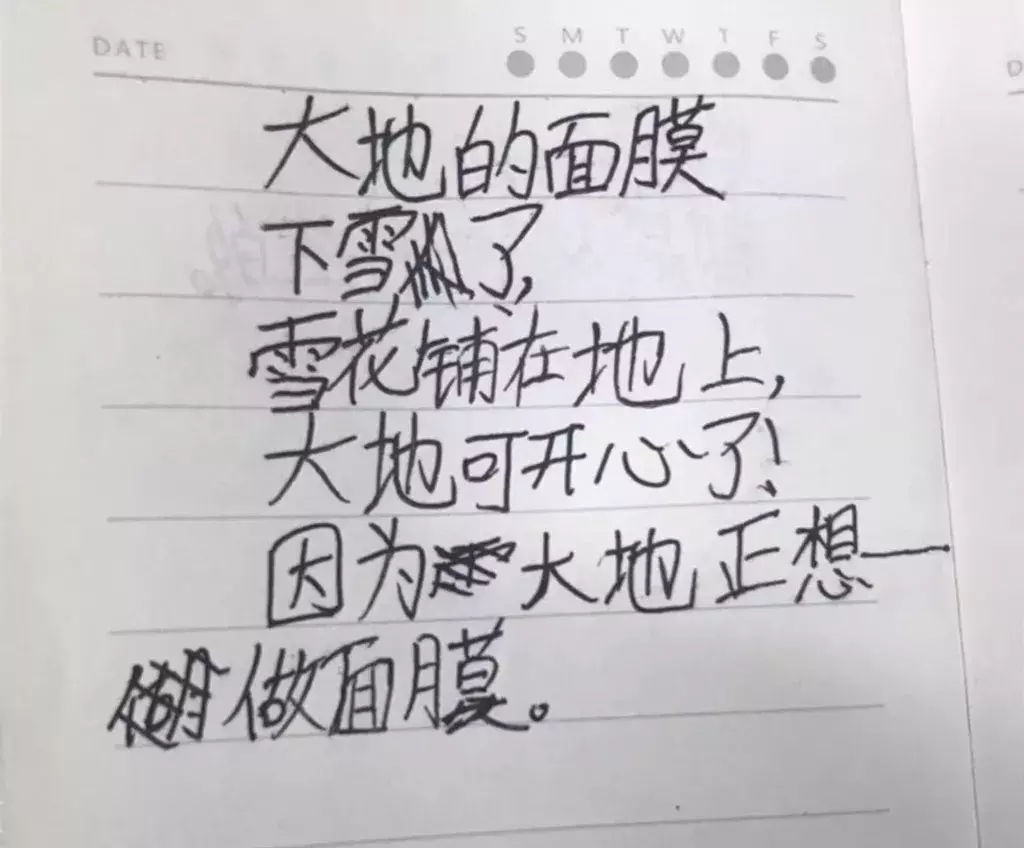 DATE
S M T W T F S
D
大地的面膜
下雪了,
雪花铺在地上,
大地可开心了!
因为大地正想——
做面膜。